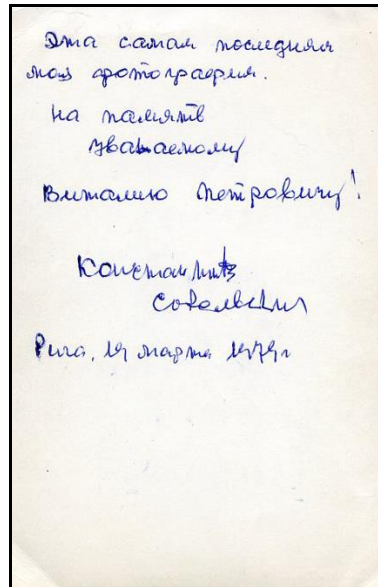 Эта самая последняя
моя фотография.
на память
уважаемому
Виталию Петровичу!
Константин
Сокольский
Рига, 19 марта 1979 г